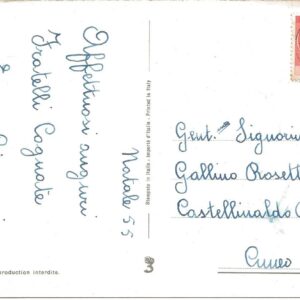 Natale 55
Affettuosi auguri
Fratelli Cognate
e
Stampato in Italia - Importé d'Italie - Printed in Italy
roduction interdite.
3
Gent. Signorin
Gallino Rosett
Castellinaldo (
Cuneo